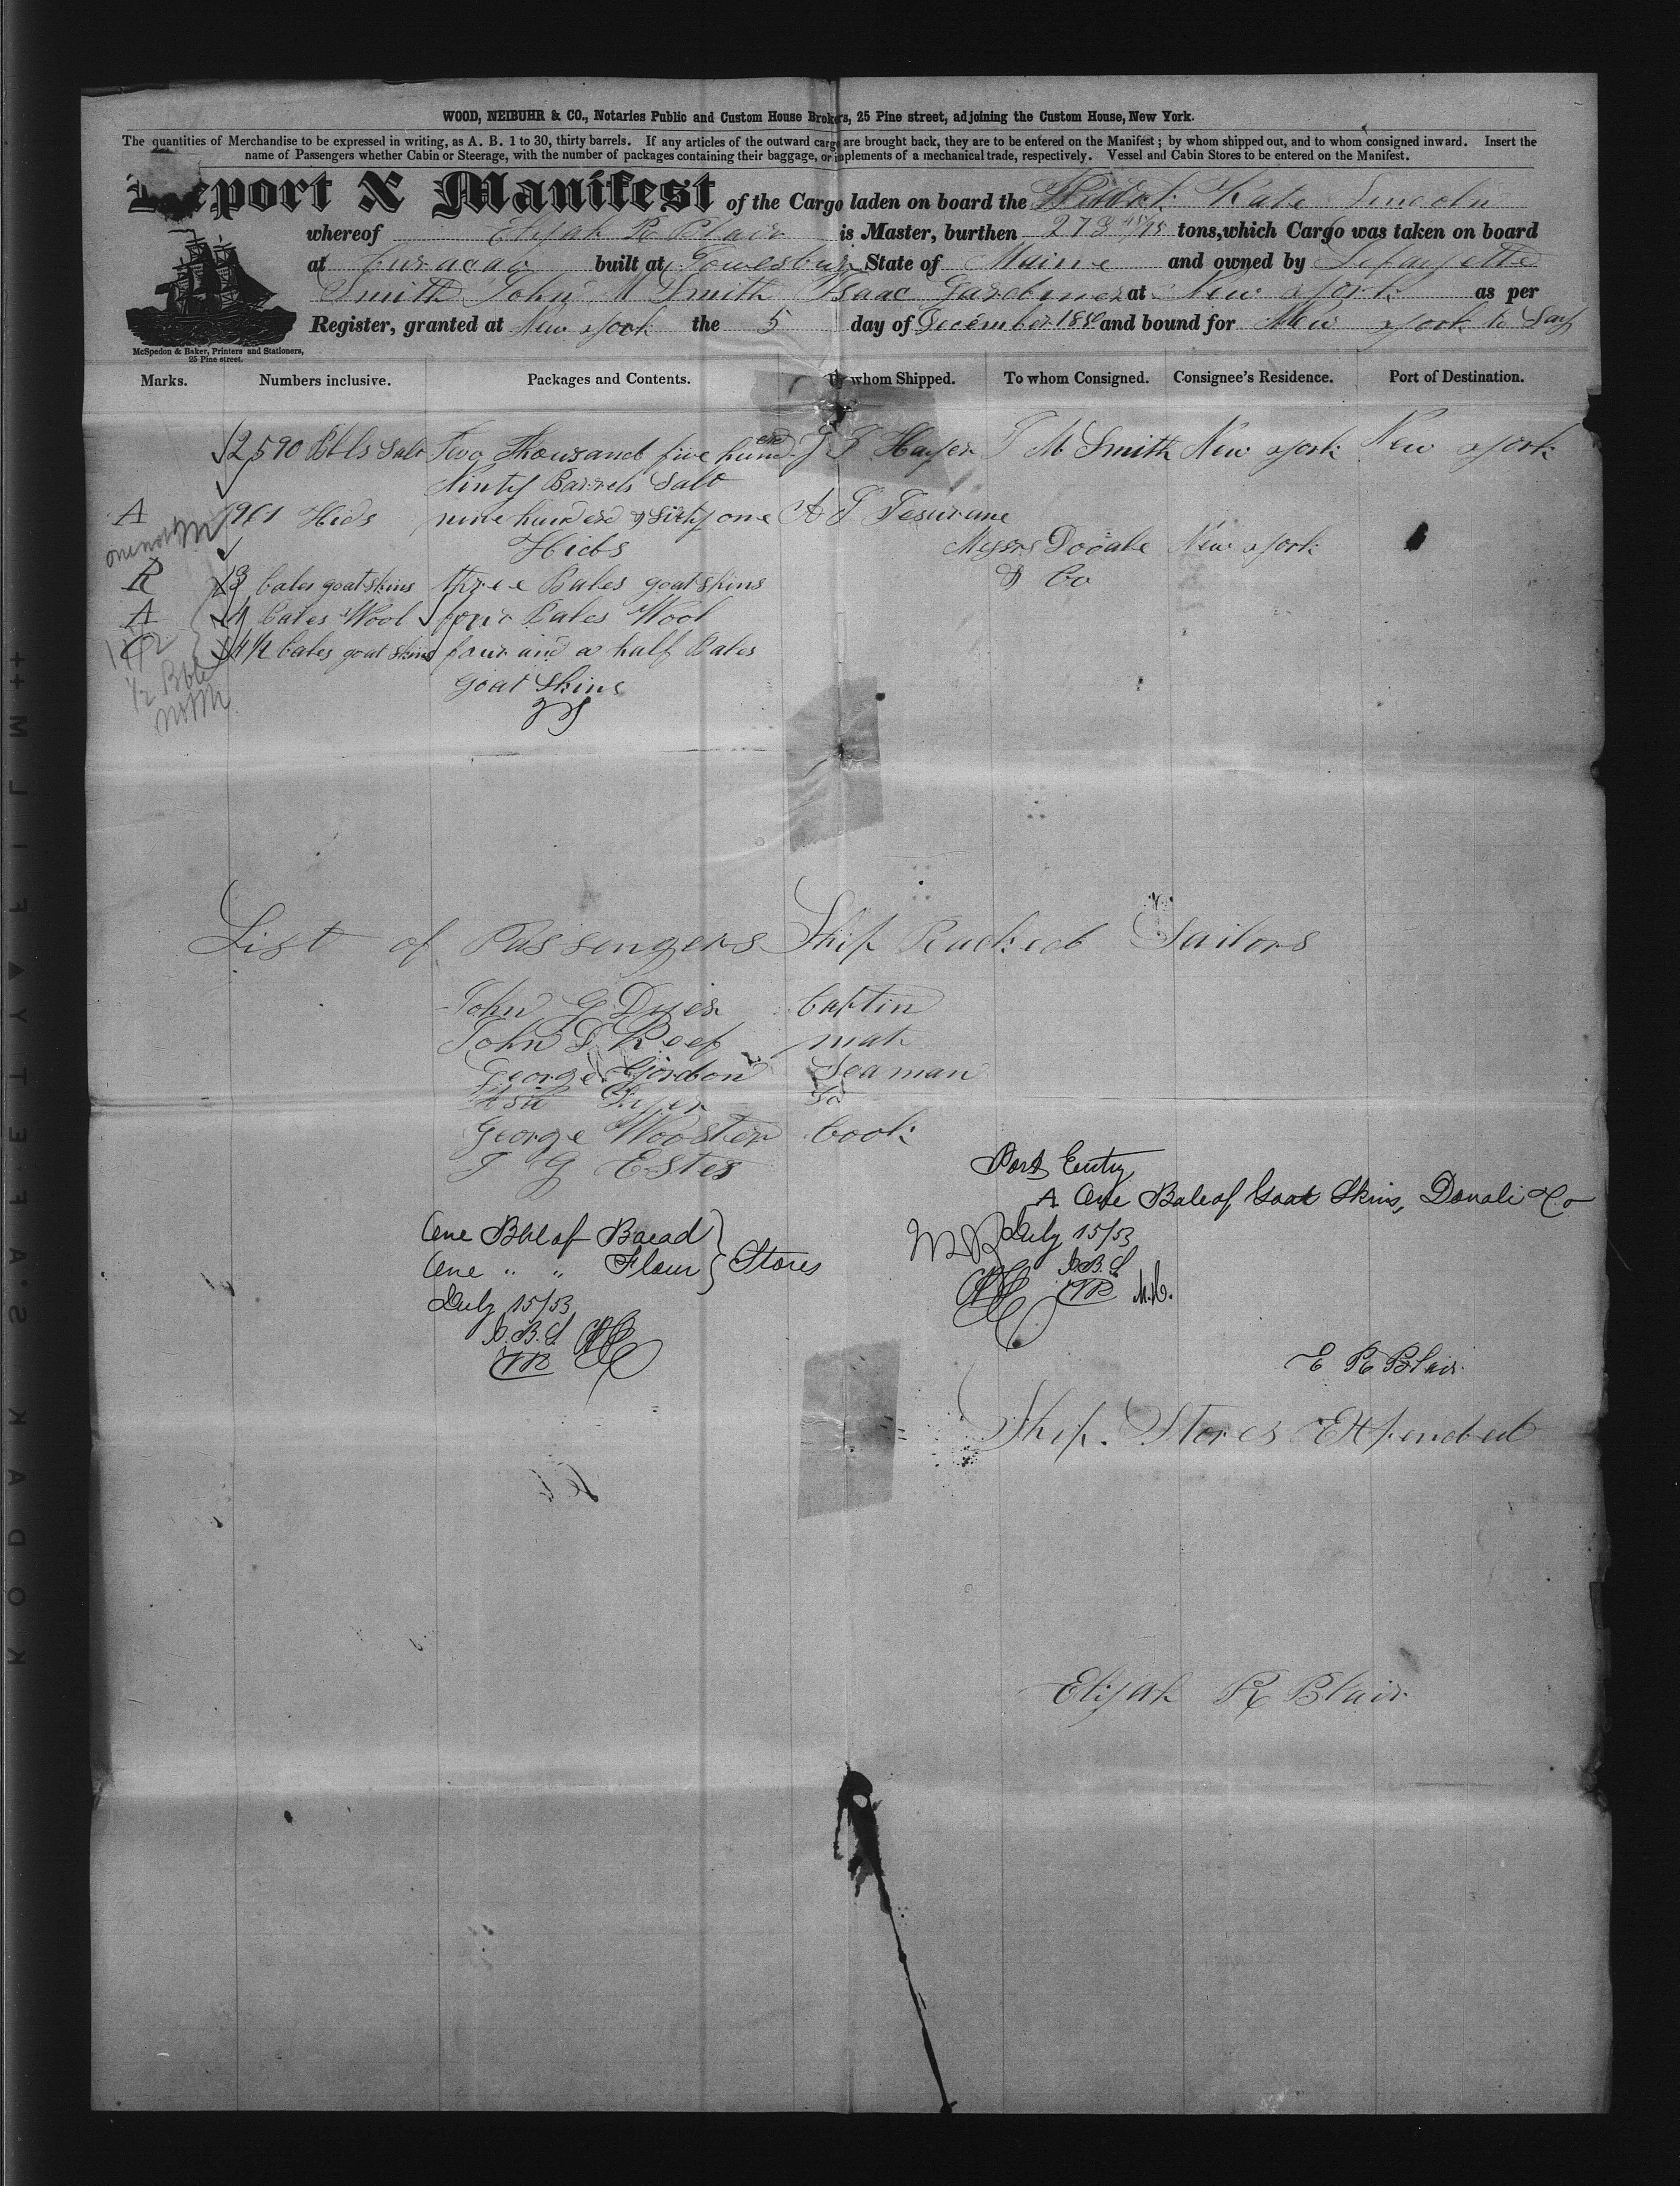 WOOD, NEIBUHR & CO., Notaries Public and Custom House Brokers, 25 Pine street, adjoining the Custom House, New York.
The quantities of Merchandise to be expressed in writing, as A. B. 1 to 30, thirty barrels. If any articles of the outward cargo are brought back, they are to be entered on the Manifest; by whom shipped out, and to whom consigned inward. Insert the
name of Passengers whether Cabin or Steerage, with the number of packages containing their baggage, or implements of a mechanical trade, respectively. Vessel and Cabin Stores to be entered on the Manifest.
Report & Manifest of the Cargo laden on board the Kate Lincoln
whereof Elijah R Blair is Master, burthen 273 45/95 tons, which Cargo was taken on board
at Curacao built at State of Maine and owned by Lafayette
Smith John M Smith Isaac Gardiner at New york as per
Register, granted at New york the 5 day of December 185 and bound for New york to Say
McSpedon & Baker, Printers and Stationers,
25 Pine street.
Marks. Numbers inclusive. Packages and Contents. By whom Shipped. To whom Consigned. Consignee's Residence. Port of Destination.
2,590 Bbls Salt Two Thousand five hund erd J M Smith New york New york
Ninty Barrels Salt
A 961 Hids nine hunderd & Sixty one
Hids Messrs New york
& Co
R 3 bales goat skins three Bales goat skins
A 4 bales Wool four Bales Wool
4 1/2 bales goat skins four and a half Bales
goat Skins
1/2 Bble
List of Passengers Ship Racked Sailors
John G Dyer Captin
John mate
George Gordon Seaman
Dyer Do
George Wooster Cook
J G Estes
Port Entry
A One Bale of Goat Skins, Donali & Co
July 15/53
One Bbl of Bread
One " " Flour } Stores
July 15/53
E R Blair
Ship. Stores Expended
Elijah R Blair
KODAK·S·A·F·E·T·Y FILM